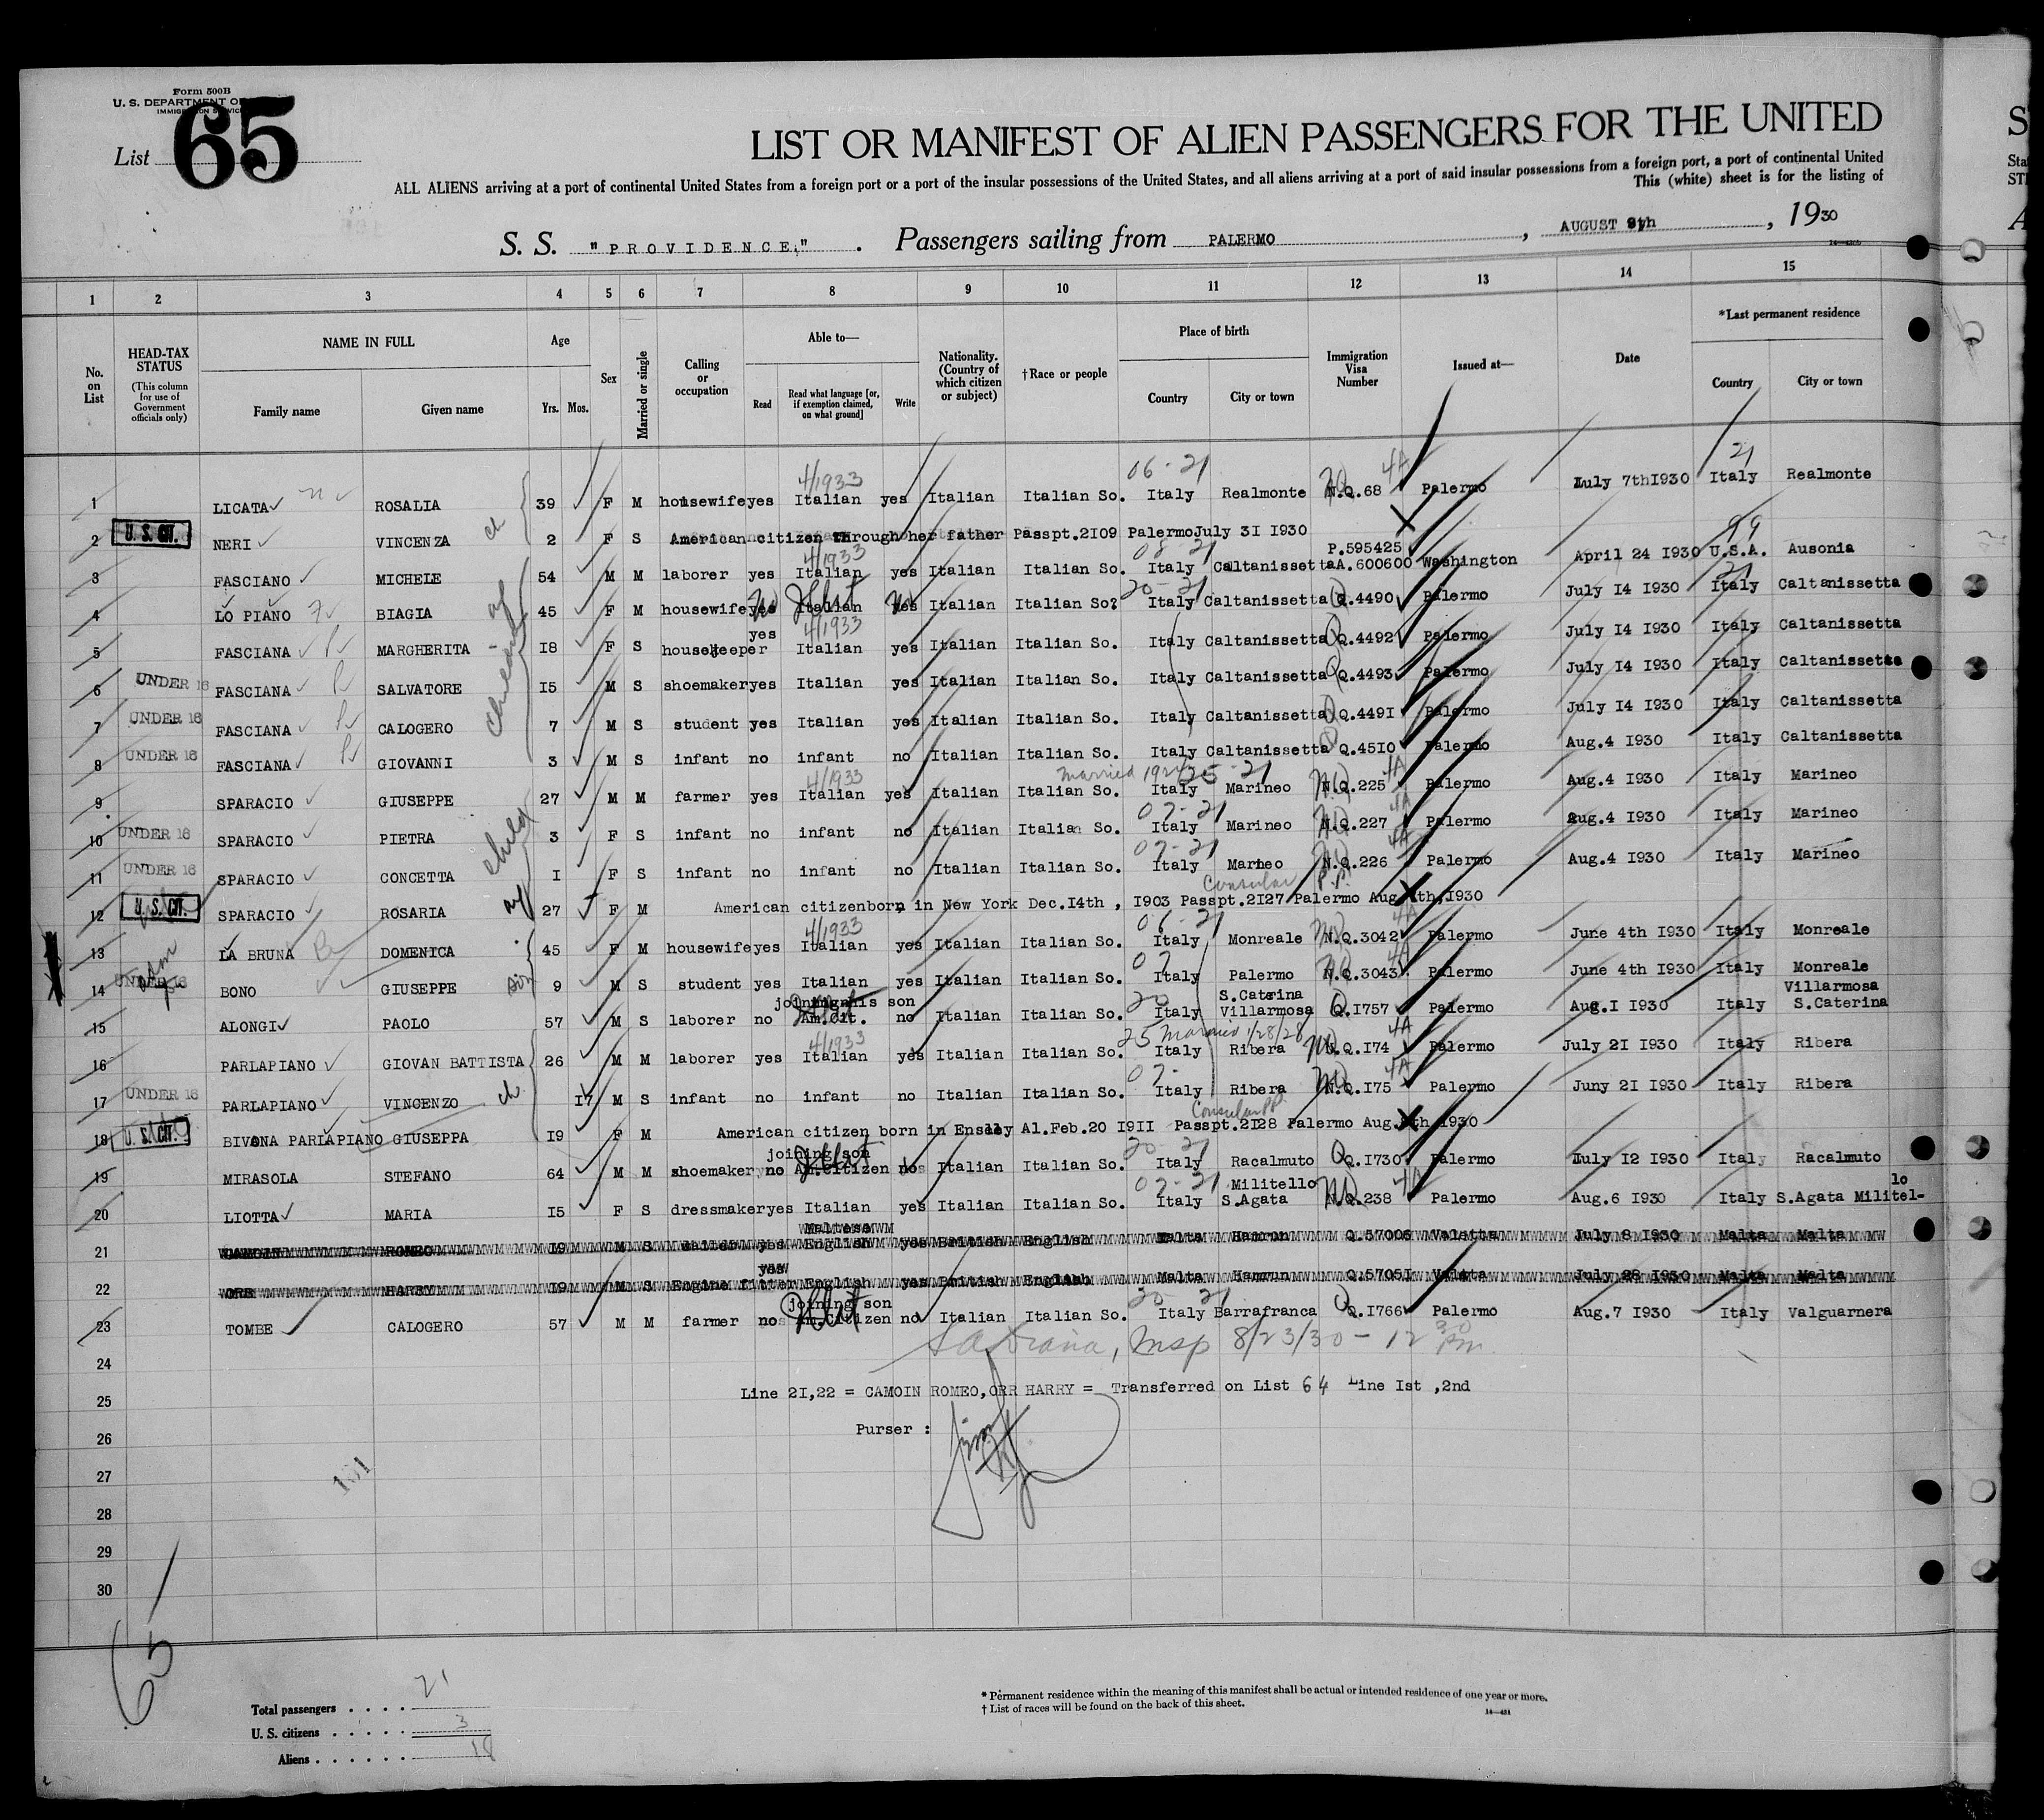 Form 500B
U. S. DEPARTMENT OF
IMMIGRATION SERVICE
List 65
LIST OR MANIFEST OF ALIEN PASSENGERS FOR THE UNITED
ALL ALIENS arriving at a port of continental United States from a foreign port or a port of the insular possessions of the United States, and all aliens arriving at a port of said insular possessions from a foreign port, a port of continental United
This (white) sheet is for the listing of
S. S. "PROVIDENCE," . Passengers sailing from PALERMO , AUGUST 9th , 1930
1 2 3 4 5 6 7 8 9 10 11 12 13 14 15
No. on List
HEAD-TAX STATUS (This column for use of Government officials only)
NAME IN FULL Family name Given name
Age Yrs. Mos.
Sex
Married or single
Calling or occupation
Able to— Read Read what language [or, if exemption claimed, on what ground] Write
Nationality. (Country of which citizen or subject)
†Race or people
Place of birth Country City or town
Immigration Visa Number
Issued at—
Date
*Last permanent residence Country City or town
06-21 4A 21
4/1933
1 LICATA ROSALIA 39 F M housewife yes Italian yes Italian Italian So. Italy Realmonte N.Q.68 Palermo July 7th I930 Italy Realmonte
2 U. S. CIT. NERI VINCENZA 2 F S American citizen through her father Passpt.2I09 Palermo July 3I I930
4/1933 08-21 P.595425 99
3 FASCIANO MICHELE 54 M M laborer yes Italian yes Italian Italian So. Italy Caltanissetta A.600600 Washington April 24 I930 U.S.A. Ausonia
20-21 21
4 LO PIANO BIAGIA 45 F M housewife yes no Italian yes no Italian Italian So. Italy Caltanissetta Q.4490 Palermo July I4 I930 Italy Caltanissetta
yes 4/1933
5 FASCIANA MARGHERITA I8 F S housekeeper Italian yes Italian Italian So. Italy Caltanissetta Q.4492 Palermo July I4 I930 Italy Caltanissetta
6 UNDER 16 FASCIANA SALVATORE I5 M S shoemaker yes Italian yes Italian Italian So. Italy Caltanissetta Q.4493 Palermo July I4 I930 Italy Caltanissetta
7 UNDER 16 FASCIANA CALOGERO 7 M S student yes Italian yes Italian Italian So. Italy Caltanissetta Q.449I Palermo July I4 I930 Italy Caltanissetta
8 UNDER 16 FASCIANA GIOVANNI 3 M S infant no infant no Italian Italian So. Italy Caltanissetta Q.45I0 Palermo Aug.4 I930 Italy Caltanissetta
4/1933 25-21 4A
9 SPARACIO GIUSEPPE 27 M M farmer yes Italian yes Italian Italian So. Italy Marineo N.Q.225 Palermo Aug.4 I930 Italy Marineo
07-21 4A
10 UNDER 16 SPARACIO PIETRA 3 F S infant no infant no Italian Italian So. Italy Marineo N.Q.227 Palermo Aug.4 I930 Italy Marineo
07-21 4A
11 UNDER 16 SPARACIO CONCETTA I F S infant no infant no Italian Italian So. Italy Marineo N.Q.226 Palermo Aug.4 I930 Italy Marineo
Consular P.P.
12 U. S. CIT. SPARACIO ROSARIA 27 F M American citizen born in New York Dec.I4th , I903 Passpt.2I27 Palermo Aug. th, I930
4/1933 06-21 4A
13 LA BRUNA DOMENICA 45 F M housewife yes Italian yes Italian Italian So. Italy Monreale N.Q.3042 Palermo June 4th I930 Italy Monreale
07 4A
14 UNDER 16 BONO GIUSEPPE son 9 M S student yes Italian yes Italian Italian So. Italy Palermo N.Q.3043 Palermo June 4th I930 Italy Monreale
joining his son S.Caterina Villarmosa
15 ALONGI PAOLO 57 M S laborer no Am.Cit. no Italian Italian So. Italy Villarmosa Q.I757 Palermo Aug.I I930 Italy S.Caterina
4/1933 25 Married 1/28/28 4A
16 PARLAPIANO GIOVAN BATTISTA 26 M M laborer yes Italian yes Italian Italian So. Italy Ribera N.Q.I74 Palermo July 2I I930 Italy Ribera
07- 4A
17 UNDER 16 PARLAPIANO VINCENZO ch. I7 M S infant no infant no Italian Italian So. Italy Ribera N.Q.I75 Palermo Juny 2I I930 Italy Ribera
Consular PP.
18 U. S. CIT. BIVONA PARLAPIANO GIUSEPPA I9 F M American citizen born in Ensley Al.Feb.20 I9II Passpt.2I28 Palermo Aug. th I930
joining son 20-21
19 MIRASOLA STEFANO 64 M M shoemaker no Am.Citizen no Italian Italian So. Italy Racalmuto Q.I730 Palermo July I2 I930 Italy Racalmuto
07-21 Militello 4A lo
20 LIOTTA MARIA I5 F S dressmaker yes Italian yes Italian Italian So. Italy S.Agata N.Q.238 Palermo Aug.6 I930 Italy S.Agata Militel-
Maltese
21 CAMOIN ROMEO I9 M S yes English yes British English Malta Hamrun Q.57006 Valetta July 8 I930 Malta Malta
yes
22 ORR HARRY I9 M S Engine fitter English yes British English Malta Hamrun Q.5705I Valetta July 28 I930 Malta Malta
joining son 20-21
23 TOMBE CALOGERO 57 M M farmer no Am.Citizen no Italian Italian So. Italy Barrafranca Q.I766 Palermo Aug.7 I930 Italy Valguarnera
24 8/23/30 - 12 30 PM
25 Line 2I,22 = CAMOIN ROMEO,ORR HARRY = Transferred on List 64 Line Ist ,2nd
26 Purser :
27
28
29
30
65
Total passengers . . . . 21
U. S. citizens . . . . . 3
Aliens . . . . . . 18
* Permanent residence within the meaning of this manifest shall be actual or intended residence of one year or more.
† List of races will be found on the back of this sheet.